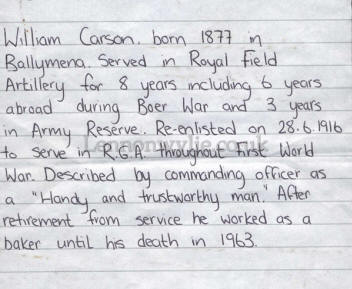 William Carson. born 1877 in
Ballymena. Served in Royal Field
Artillery for 8 years including 6 years
abroad during Boer War and 3 years
in Army Reserve. Re-enlisted on 28.6.1916
to serve in R.G.A. throughout First World
War. Described by commanding officer as
a "Handy and trustworthy man." After
retirement from service he worked as a
baker until his death in 1963.